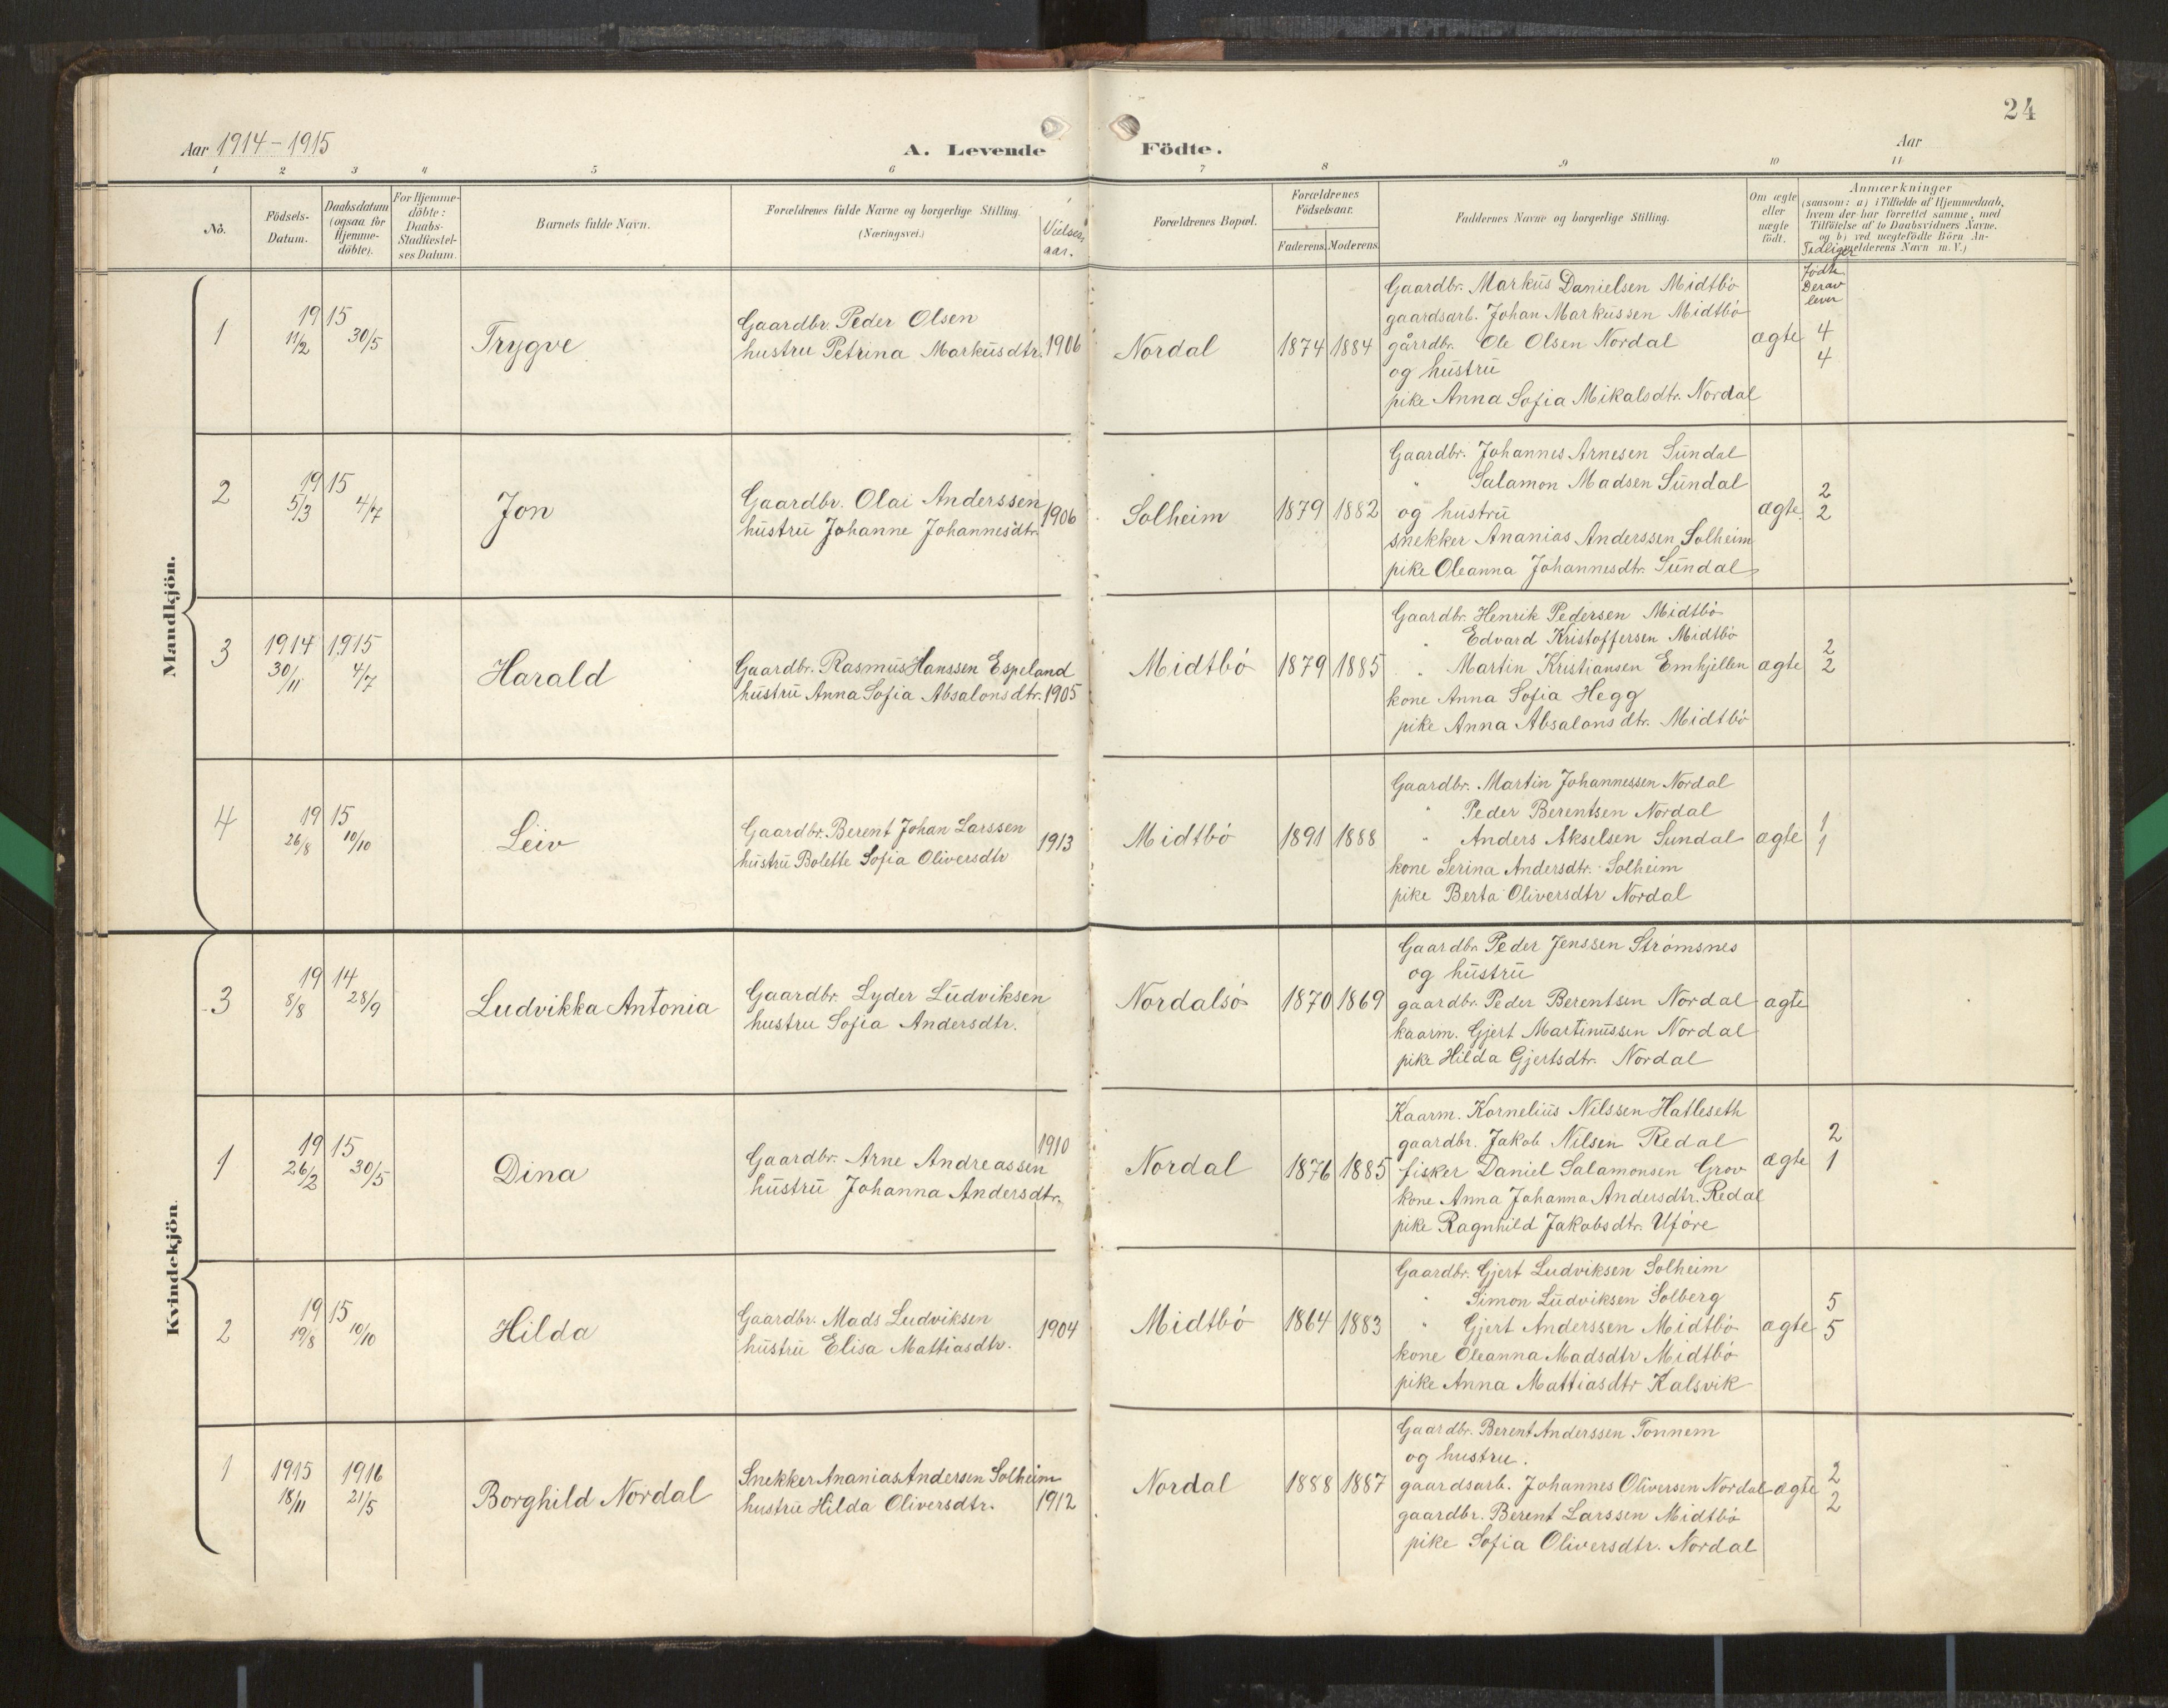 24
Aar 1914-1915
A. Levende Födte.
Aar
1 2 3 4 5 6 7 8 9 10 11
No.
Födsels-Datum.
Daabsdatum (ogsaa for Hjemme-döbte).
For Hjemme-döbte: Daabs-Stadfæstel-ses Datum.
Barnets fulde Navn.
Forældrenes fulde Navne og borgerlige Stilling.
(Næringsvei.)
Vielses aar.
Forældrenes Bopæl.
Forældrenes Födselsaar.
Faderens. Moderens.
Faddernes Navne og borgerlige Stilling.
Om ægte eller uægte födt.
Anmærkninger
(saasom: a) i Tilfælde af Hjemmedaab,
hvem der har forrettet samme, med
Tilföielse af to Daabsvidners Navne.
og b) ved uægtefödte Börn An-
melderens Navn m. V.)
Tidligere
Födte
Derav
lever
Mandkjön.
1
1915
11/2 30/5
Trygve
Gaardbr. Peder Olsen
hustru Petrina Markusdtr. 1906
Nordal
1874 1884
Gaardbr. Markus Danielsen Midtbö
gaardsarb. Johan Markussen Midtbö
gårrdbr. Ole Olsen Nordal
og hustru
pike Anna Sofia Mikalsdtr. Nordal
ægte
4
4
2
1915
5/3 4/7
Jon
Gaardbr. Olai Anderssen
hustru Johanne Johannesdtr. 1906
Solheim
1879 1882
Gaardbr. Johannes Arnesen Sundal
" Salamon Madsen Sundal
og hustru
snekker Ananias Anderssen Solheim
pike Oleanna Johannesdtr. Sundal
ægte.
2
2
3
1914 1915
30/11 4/7
Harald
Gaardbr. Rasmus Hanssen Espeland
hustru Anna Sofia Absalonsdtr. 1905
Midtbö
1879 1885
Gaardbr. Henrik Pedersen Midtbö
" Edvard Kristoffersen Midtbö
" Martin Kristiansen Emhjellen
kone Anna Sofia Hegg
pike Anna Absalonsdtr. Midtbö
ægte
2
2
4
1915
26/8 10/10
Leiv
Gaardbr. Berent Johan Larssen
hustru Bolette Sofia Oliversdtr
1913
Midtbö
1891 1888
Gaardbr. Martin Johannessen Nordal
" Peder Berentsen Nordal
" Anders Akselsen Sundal
kone Serina Andersdtr. Solheim
pike Berta Oliversdtr Nordal
ægte
1
1
Kvindekjön.
3
1914
8/8 28/9
Ludvikka Antonia
Gaardbr. Lyder Ludviksen
hustru Sofia Andersdtr.
Nordalsö
1870 1869
Gaardbr. Peder Jenssen Strömsnes
og hustru
gaardbr. Peder Berentsen Nordal
kaarm. Gjert Martinussen Nordal
pike Hilda Gjertsdtr. Nordal
ægte
1
1915
26/2 30/5
Dina
1910
Gaardbr. Arne Andreassen
hustru Johanna Andersdtr.
Nordal
1876 1885
Kaarm. Kornelius Nilssen Hatleseth
gaardbr. Jakob Nilsen Redal
fisker Daniel Salamonsen Grov
kone Anna Johanna Andersdtr. Redal
pike Ragnhild Jakobsdtr. Uföre
ægte
2
1
2
1915
19/8 10/10
Hilda
Gaardbr. Mads Ludviksen
hustru Elisa Mattiasdtr.
1904
Midtbö
1864 1883
Gaardbr. Gjert Ludviksen Solheim
" Simon Ludviksen Solberg
" Gjert Anderssen Midtbö
kone Oleanna Madsdtr Midtbö
pike Anna Mattiasdtr Kalsvik
ægte
5
5
1
1915 1916
18/11 21/5
Borghild Nordal
Snekker Ananias Andersen Solheim
hustru Hilda Oliversdtr. 1912
Nordal
1888 1887
Gaardbr. Berent Anderssen Tonnem
og hustru.
gaardsarb. Johannes Oliversen Nordal
gaardbr. Berent Larssen Midtbö
pike Sofia Oliversdtr. Nordal
ægte
2
2